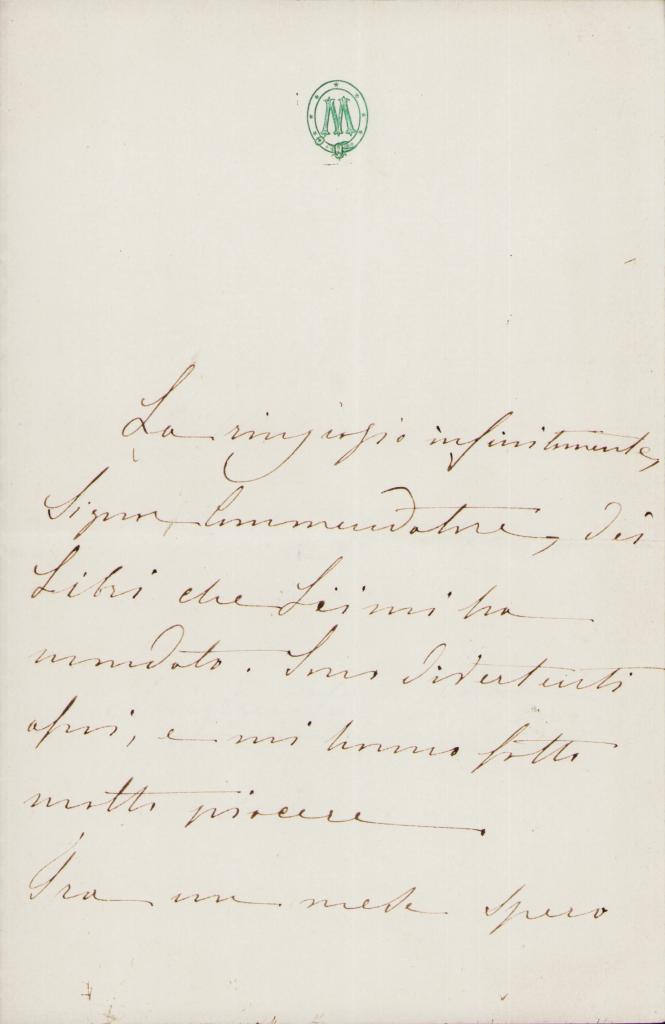 M
La ringrazio infinitamente,
Signor Commendatore, dei
Libri che Lei mi ha
mandato. Sono divertenti
assai, e mi hanno fatto
molto piacere.
Fra un mese spero